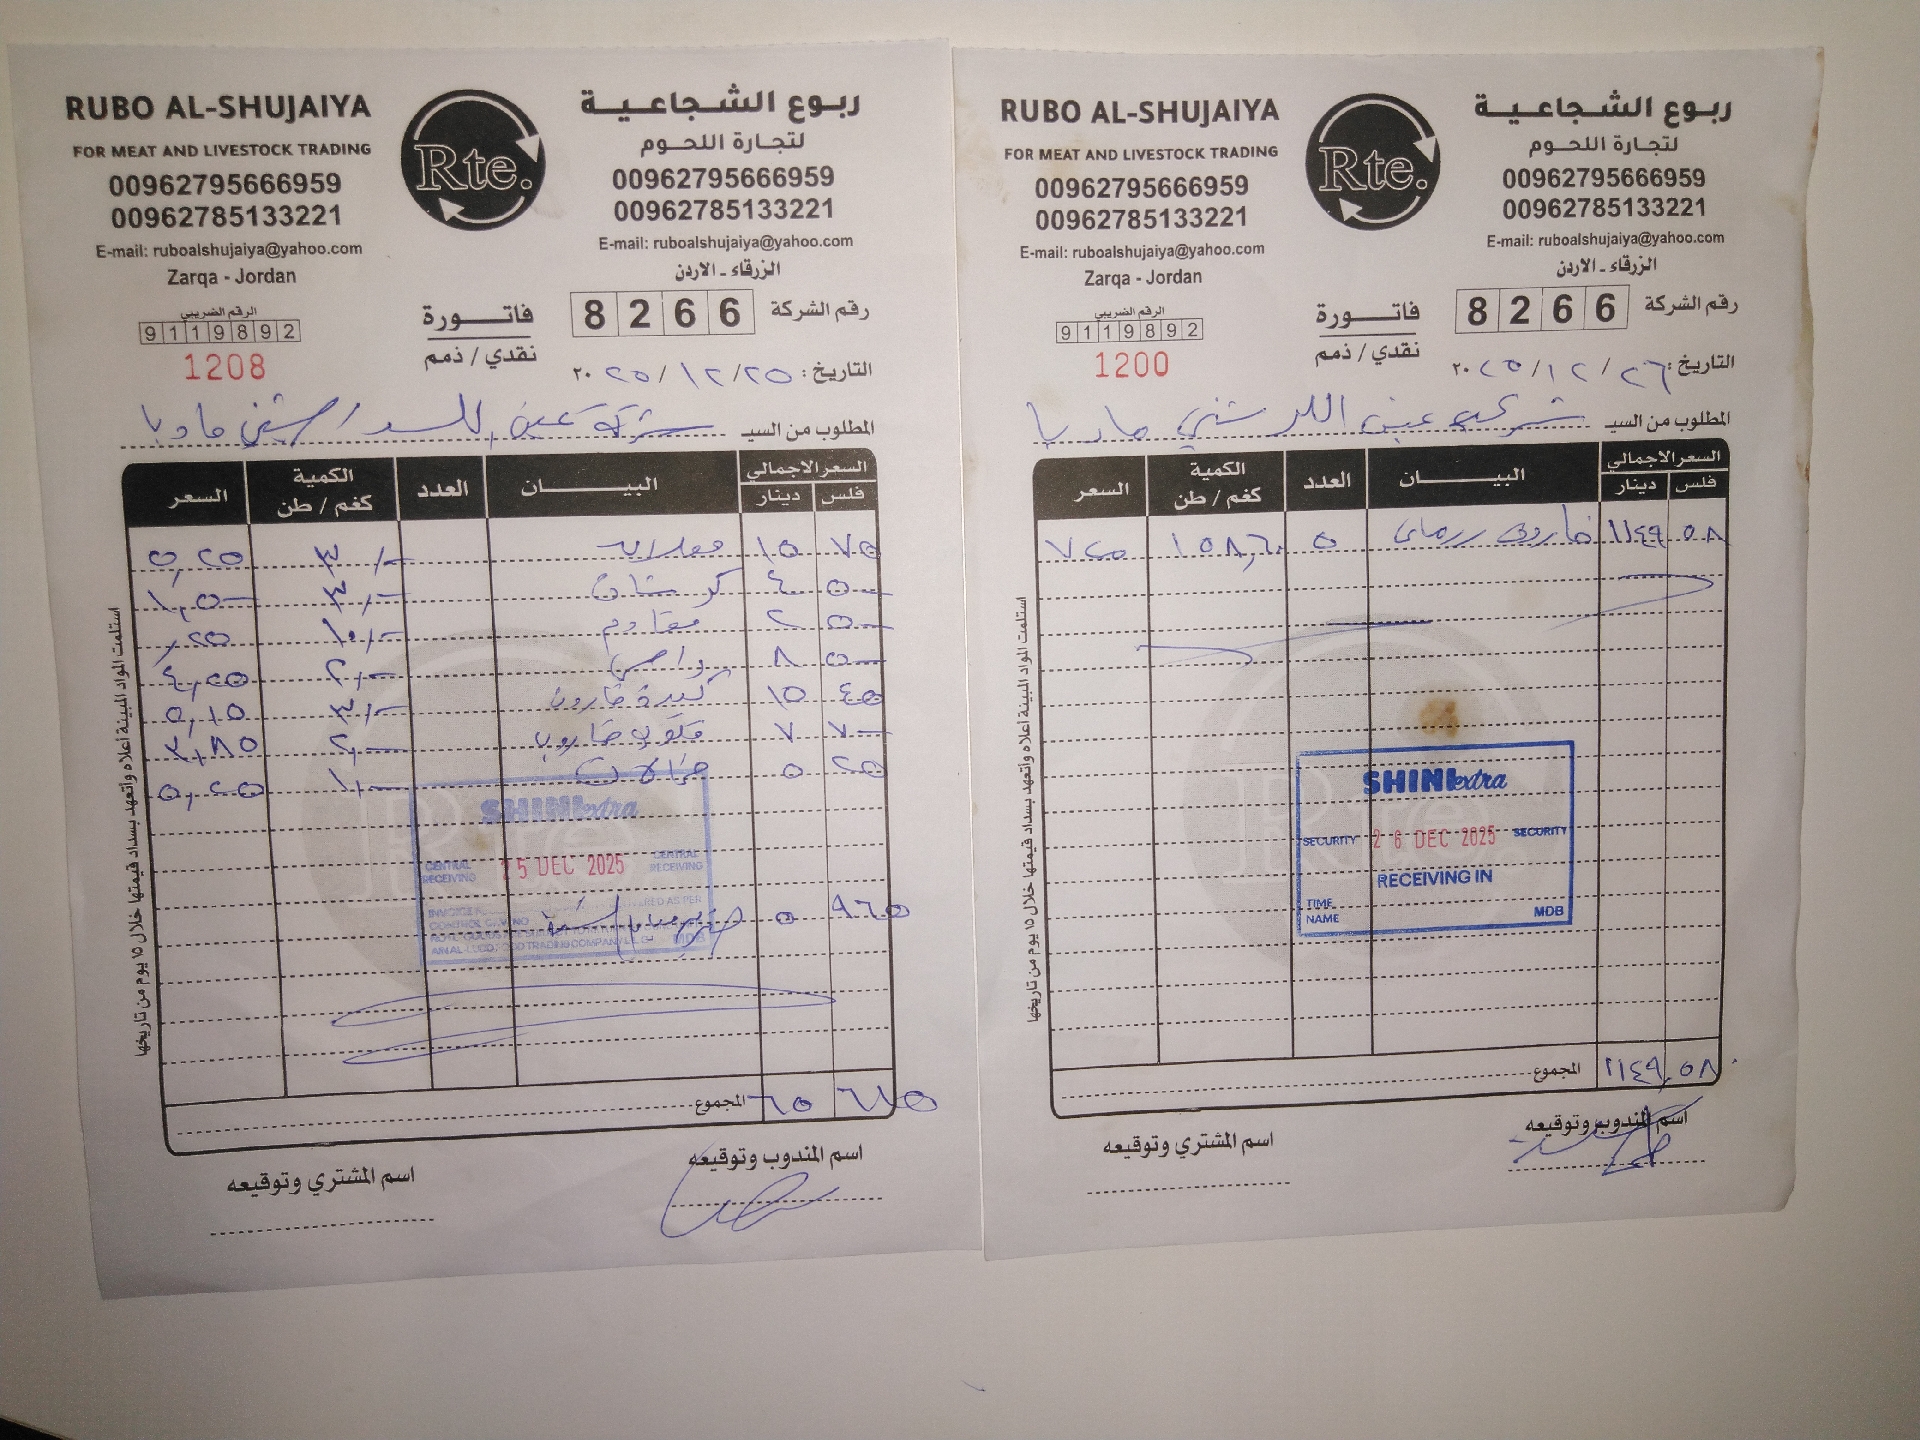 RUBO AL-SHUJAIYA
FOR MEAT AND LIVESTOCK TRADING
00962795666959
00962785133221
E-mail: ruboalshujaiya@yahoo.com
Zarqa - Jordan
Rte.
ربوع الشجاعية
لتجارة اللحوم
00962795666959
00962785133221
E-mail: ruboalshujaiya@yahoo.com
الزرقاء - الاردن
رقم الشركة 8266
فاتورة
نقدي / ذمم
الرقم الضريبي
9119892
1208
التاريخ: ٢٠٢٥/١٢/٢٥
المطلوب من السيد شركة عين اللد شيني مادبا
السعر الاجمالي
فلس دينار البيان العدد الكمية كغم / طن السعر
٧٥٠ ١٥ معلاق ٣٫- ٥٫٢٥
٥٠٠ ٤ ٣٫- ١٫٥٠٠
٥٠٠ ٢ مقادم ١٠٫- ٫٢٥
٥٠٠ ٨ ٢٫- ٤٫٢٥
٤٥٠ ١٥ كبدة خاروف ٣٫- ٥٫١٥
٧٠٠ ٧ خاروف ٢٫- ٣٫٨٥
٢٥٠ ٥ ١٫- ٥٫٢٥
SHINIextra
CENTRAL RECEIVING 25 DEC 2025 CENTRAL RECEIVING
MDB
٩٦٥ ٥
المجموع ٦٥ ٦١٥
استلمت المواد المبينة اعلاه وأتعهد بسداد قيمتها خلال ١٥ يوم من تاريخها
اسم المندوب وتوقيعه
اسم المشتري وتوقيعه
RUBO AL-SHUJAIYA
FOR MEAT AND LIVESTOCK TRADING
00962795666959
00962785133221
E-mail: ruboalshujaiya@yahoo.com
Zarqa - Jordan
Rte.
ربوع الشجاعية
لتجارة اللحوم
00962795666959
00962785133221
E-mail: ruboalshujaiya@yahoo.com
الزرقاء - الاردن
رقم الشركة 8266
فاتورة
نقدي / ذمم
الرقم الضريبي
9119892
1200
التاريخ: ٢٠٢٥/١٢/٢٦
المطلوب من السيد شركة عين اللد شيني مادبا
السعر الاجمالي
فلس دينار البيان العدد الكمية كغم / طن السعر
٠٥٨ ١١٤٩ خاروف روماني ٥ ١٥٨٫٦٠ ٧٢٥
SHINIextra
SECURITY 26 DEC 2025 SECURITY
RECEIVING IN
TIME
NAME MDB
المجموع ١١٤٩٫٠٥٨
استلمت المواد المبينة اعلاه وأتعهد بسداد قيمتها خلال ١٥ يوم من تاريخها
اسم المندوب وتوقيعه
اسم المشتري وتوقيعه